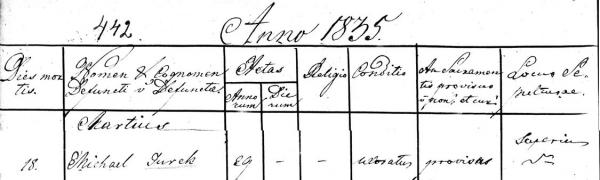 442. Anno 1835.
Dies mor-
tis.
Nomen & Cognomen
Defuncti v Defunctae
Aetas
Anno
rum
Die
rum
Religio
Conditio
An Sacramen
tis provisus
v non, et cur?
Locus Se-
pulturae.
Martius
18. Michael Turek 69 - - uxoratus provisus
Superius